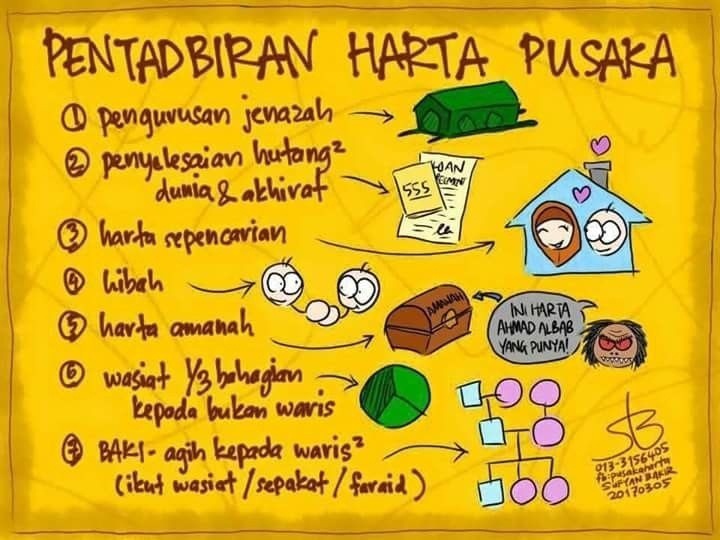 PENTADBIRAN HARTA PUSAKA
① pengurusan jenazah
② penyelesaian hutang²
dunia & akhirat
555
LOAN
③ harta sepencarian
④ hibah
AMANAH
INI HARTA
AHMAD ALBAB
YANG PUNYA!
⑤ harta amanah
⑥ wasiat 1/3 bahagian
kepada bukan waris
⑦ BAKI - agih kepada waris²
(ikut wasiat / sepakat / faraid)
013-3156405
fb:pusakaharta
SUFYAN BAKIR
20170305